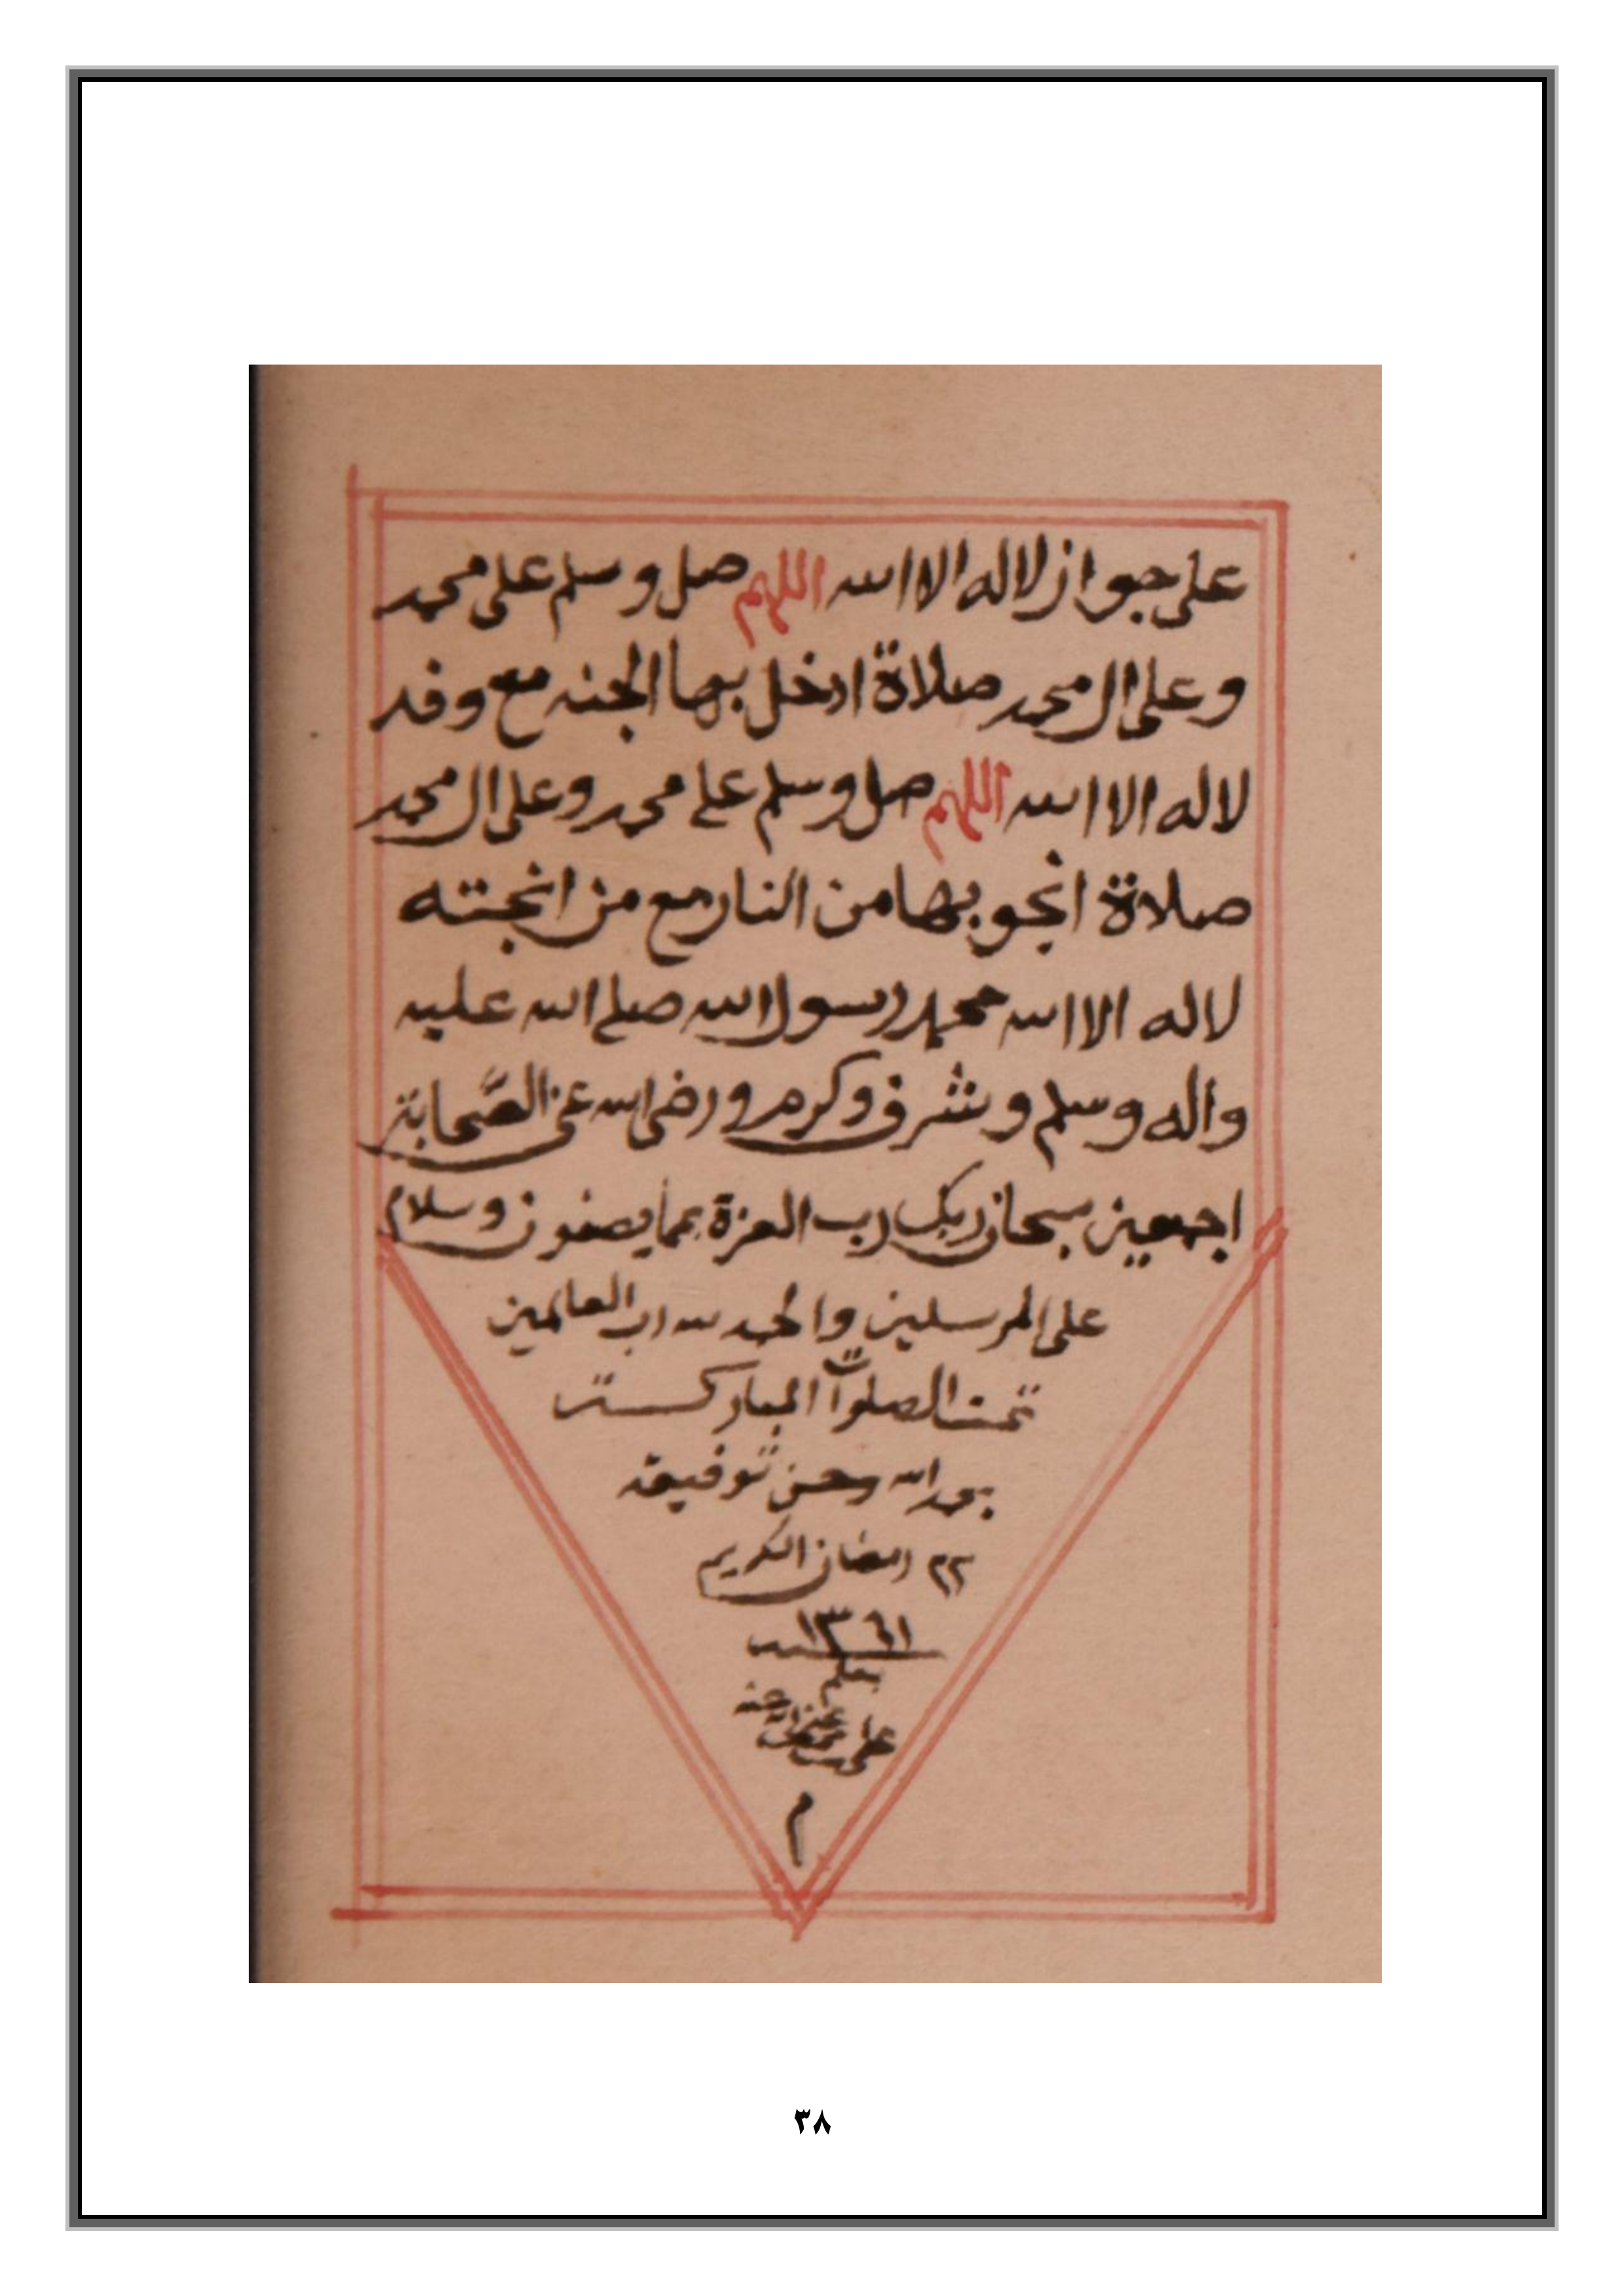 على جواز لا اله الا الله اللهم صل وسلم على محمد
وعلى ال محمد صلاة ادخل بها الجنه مع وفد
لا اله الا الله اللهم صل وسلم على محمد وعلى ال محمد
صلاة انجو بها من النار مع من انجته
لا اله الا الله محمد رسول الله صلى الله عليه
واله وسلم وشرف وكرم ورضى الله عن الصحابة
اجمعين سبحان ربك رب العزة عما يصفون وسلام
على المرسلين والحمد لله رب العالمين
تمت الصلوات المباركة
بحمد الله وحسن توفيقه
٢٢ رمضان الكريم
١٣٦١ سنه
بقلم
على
م
٣٨